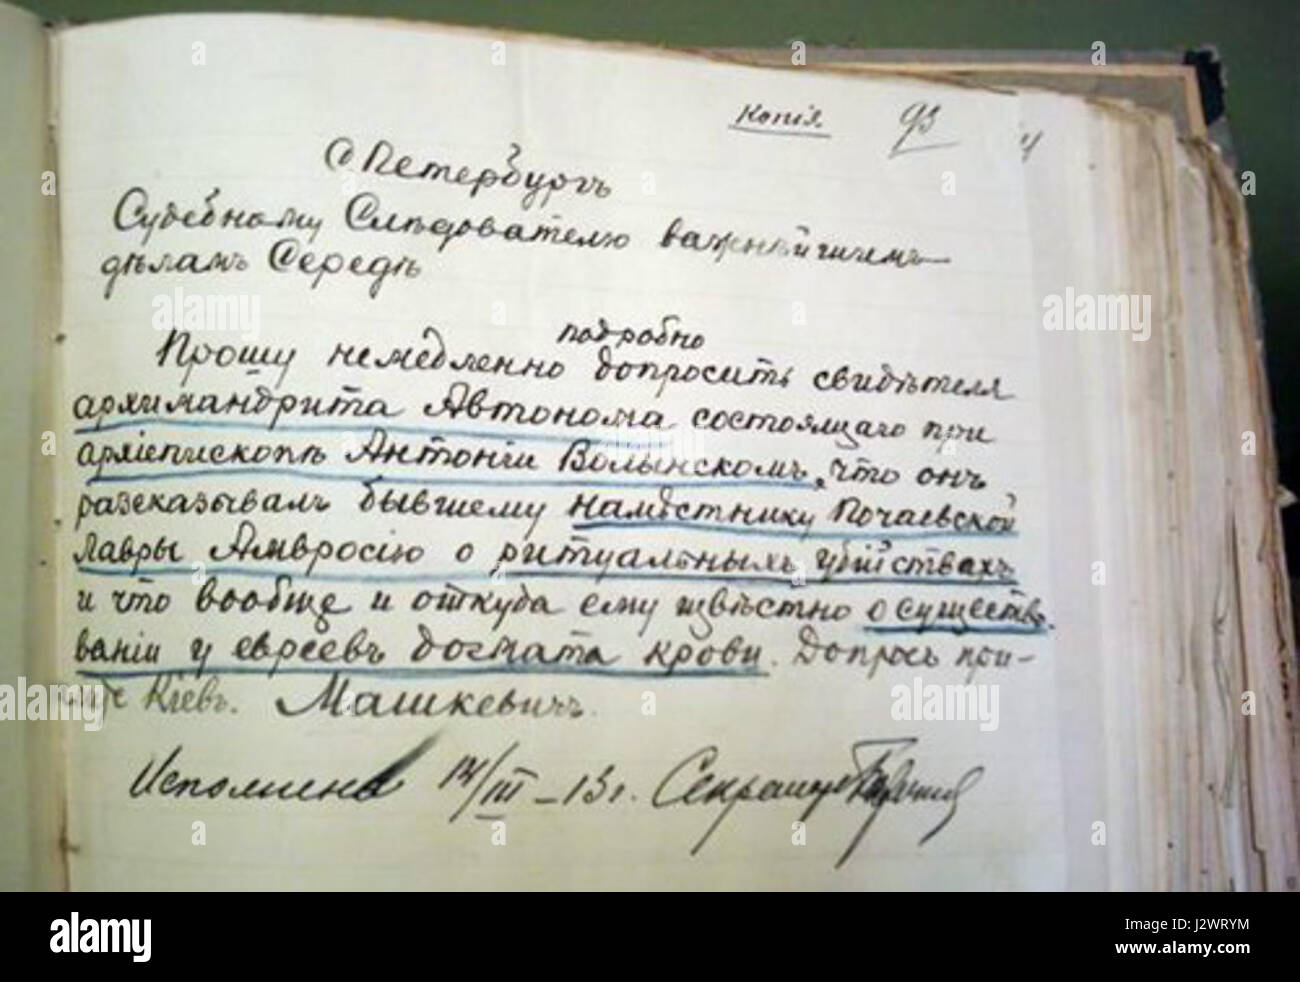 Копія 93
С Петербургъ
Судебному Слѣдователю важнѣйшимъ
дѣламъ Середѣ
подробно
Прошу немедленно допросить свидѣтеля
архимандрита Автонома состоящаго при
архіепископѣ Антоніи Волынскомъ, что онъ
разсказывалъ бывшему намѣстнику Почаевской
Лавры Амвросію о ритуальныхъ убійствахъ
и что вообще и откуда ему извѣстно о существо-
ваніи у евреевъ догмата крови. Допросъ при-
Кіевъ. Машкевичъ.
Исполнено 14/III – 13 г. Секретарь
alamy
J2WRYM
www.alamy.com